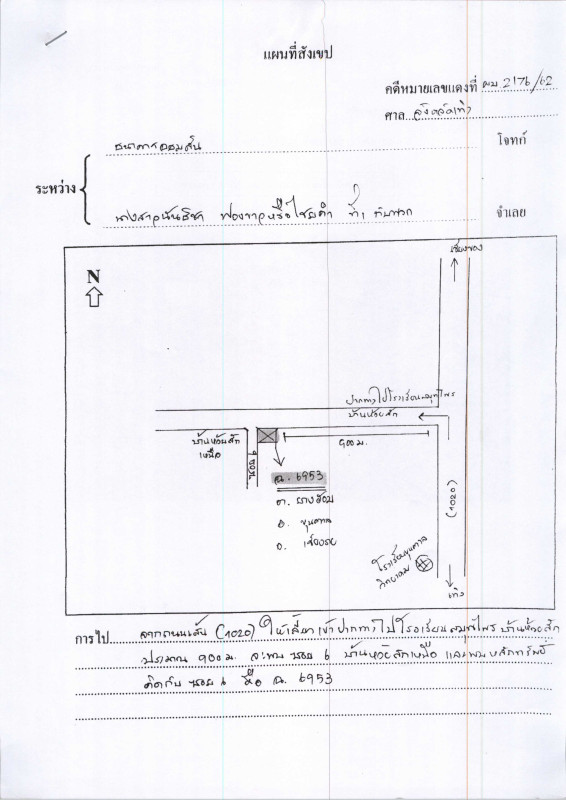 แผนที่สังเขป
คดีหมายเลขแดงที่ ผบ 2176/62
ศาล จังหวัดเทิง
ธนาคารออมสิน โจทก์
ระหว่าง
นางสาวนันธิชา ฟองขาวหรือไชยคำ ที่1 กับพวก จำเลย
เชียงของ
N
ปากทางไปโรงเรียนสมุนไพร
บ้านห้วยสัก
บ้านห้วยสัก
เหนือ
ซอย 6
900 ม.
ฉ. 6953
ต. ยางฮอม
อ. ขุนตาล
จ. เชียงราย
(1020)
โรงเรียนขุนตาล
วิทยาคม
เทิง
การไป จากถนนเส้น (1020) ให้เลี้ยวเข้าปากทางไปโรงเรียนสมุนไพร บ้านห้วยสัก
ประมาณ 900 ม. จะพบ ซอย 6 บ้านห้วยสักเหนือ และพบหลักทรัพย์
ติดกับ ซอย 6 คือ ฉ. 6953